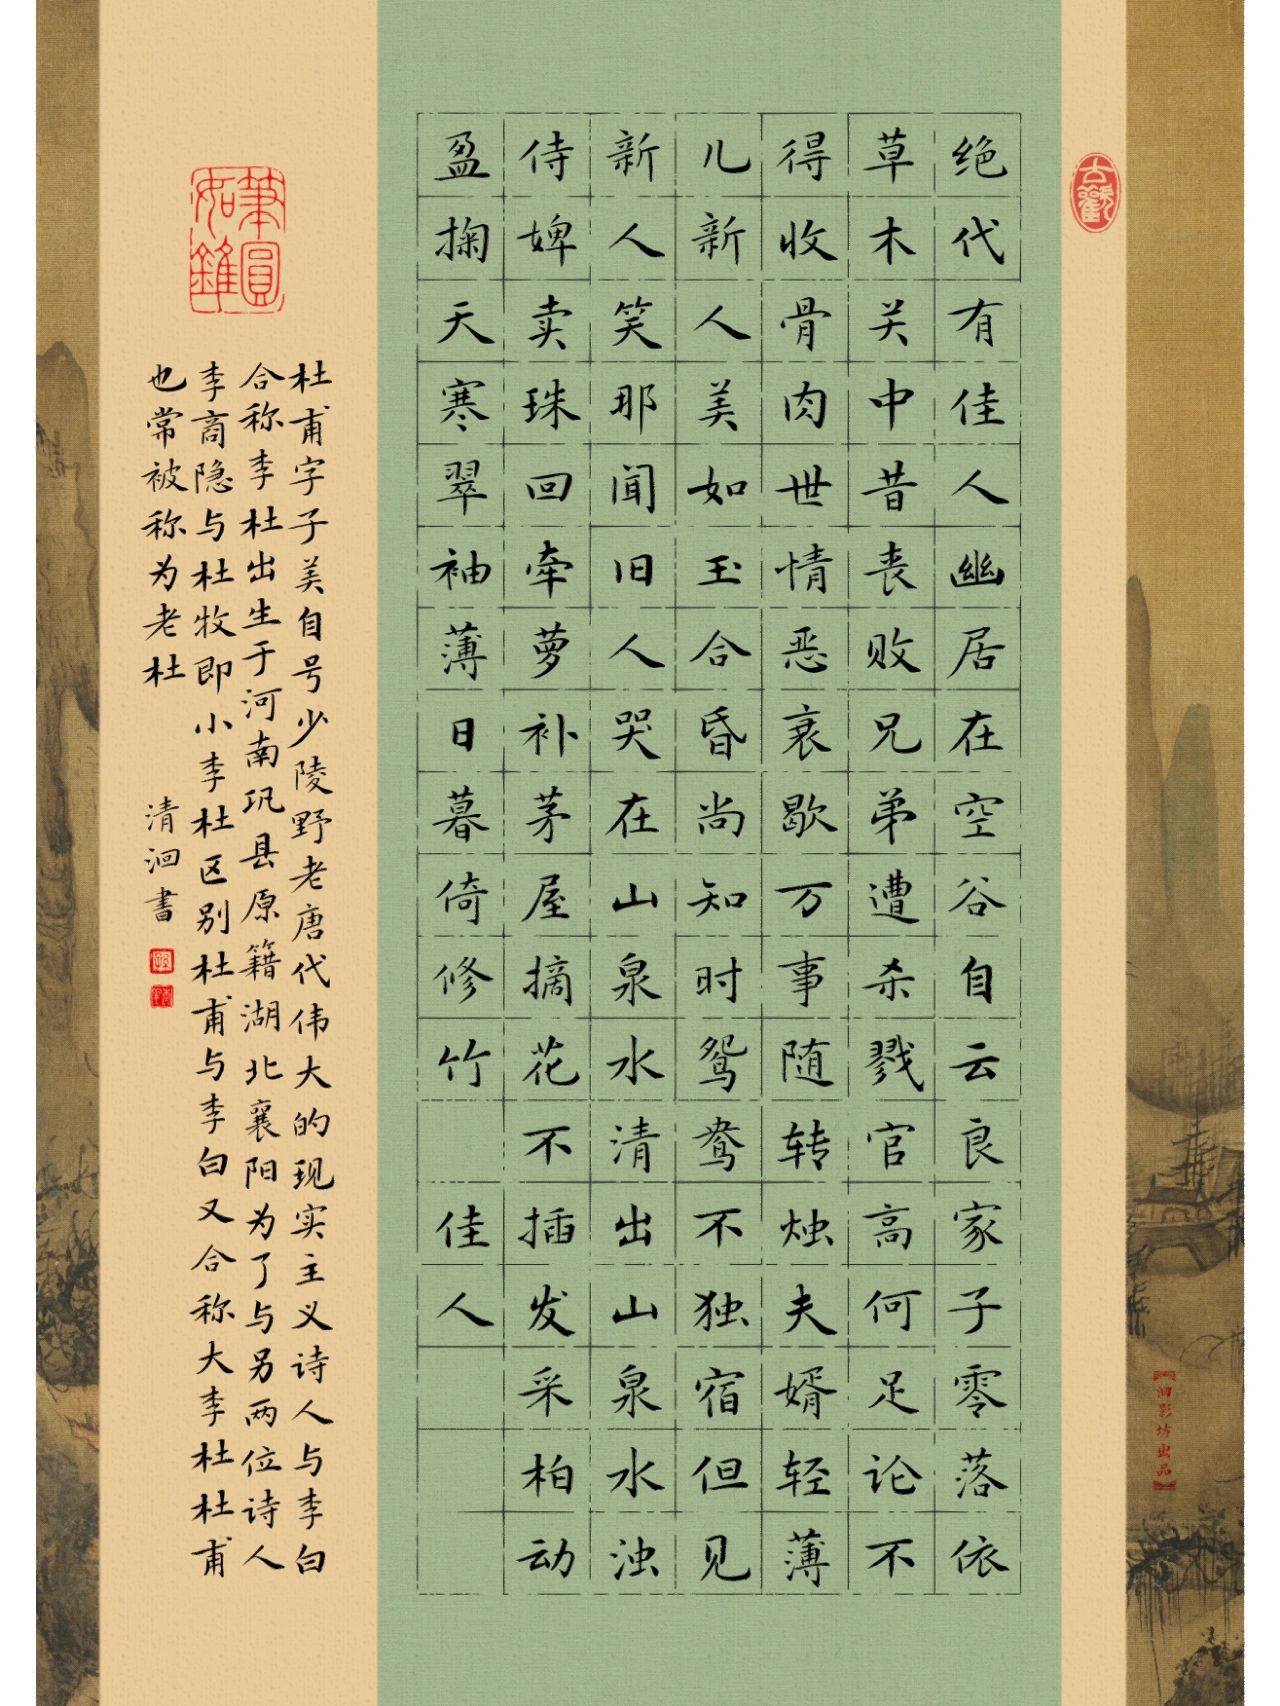 古觀
绝代有佳人幽居在空谷自云良家子零落依
草木关中昔丧败兄弟遭杀戮官高何足论不
得收骨肉世情恶衰歇万事随转烛夫婿轻薄
儿新人美如玉合昏尚知时鸳鸯不独宿但见
新人笑那闻旧人哭在山泉水清出山泉水浊
侍婢卖珠回牵萝补茅屋摘花不插发采柏动
盈掬天寒翠袖薄日暮倚修竹 佳人
筆圓如錐
杜甫字子美自号少陵野老唐代伟大的现实主义诗人与李白
合称李杜出生于河南巩县原籍湖北襄阳为了与另两位诗人
李商隐与杜牧即小李杜区别杜甫与李白又合称大李杜杜甫
也常被称为老杜 清洄書
影坊出品】